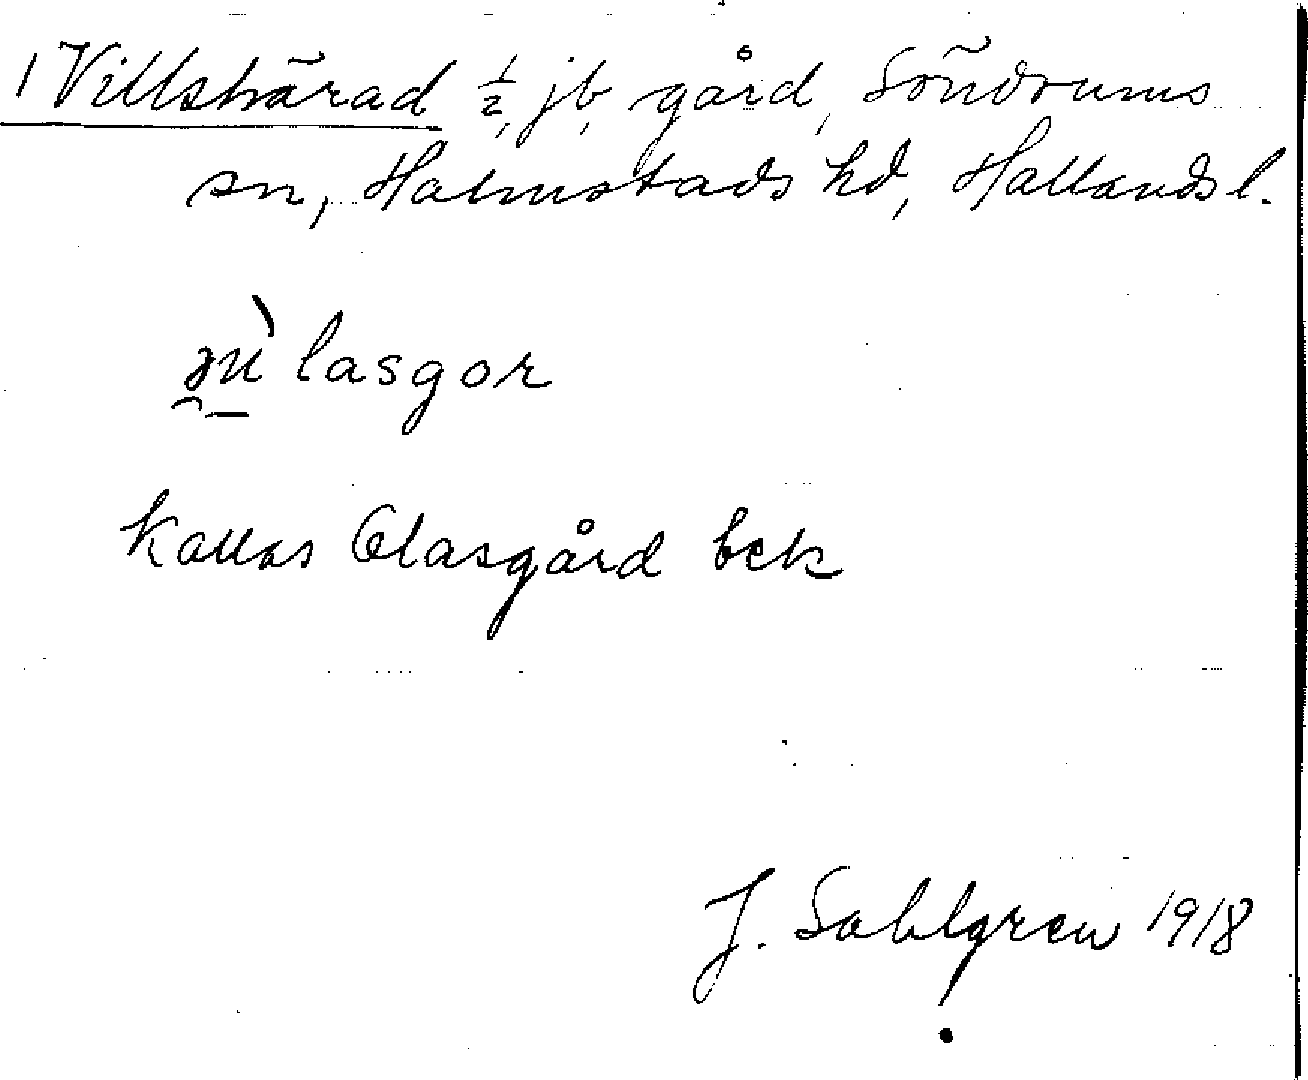 1 Villshärad ½, jb, gård, Söndrums
sn, Halmstads hd, Hallands l.
lasgor
kallas Olasgård bek
J. Sahlgren 1918